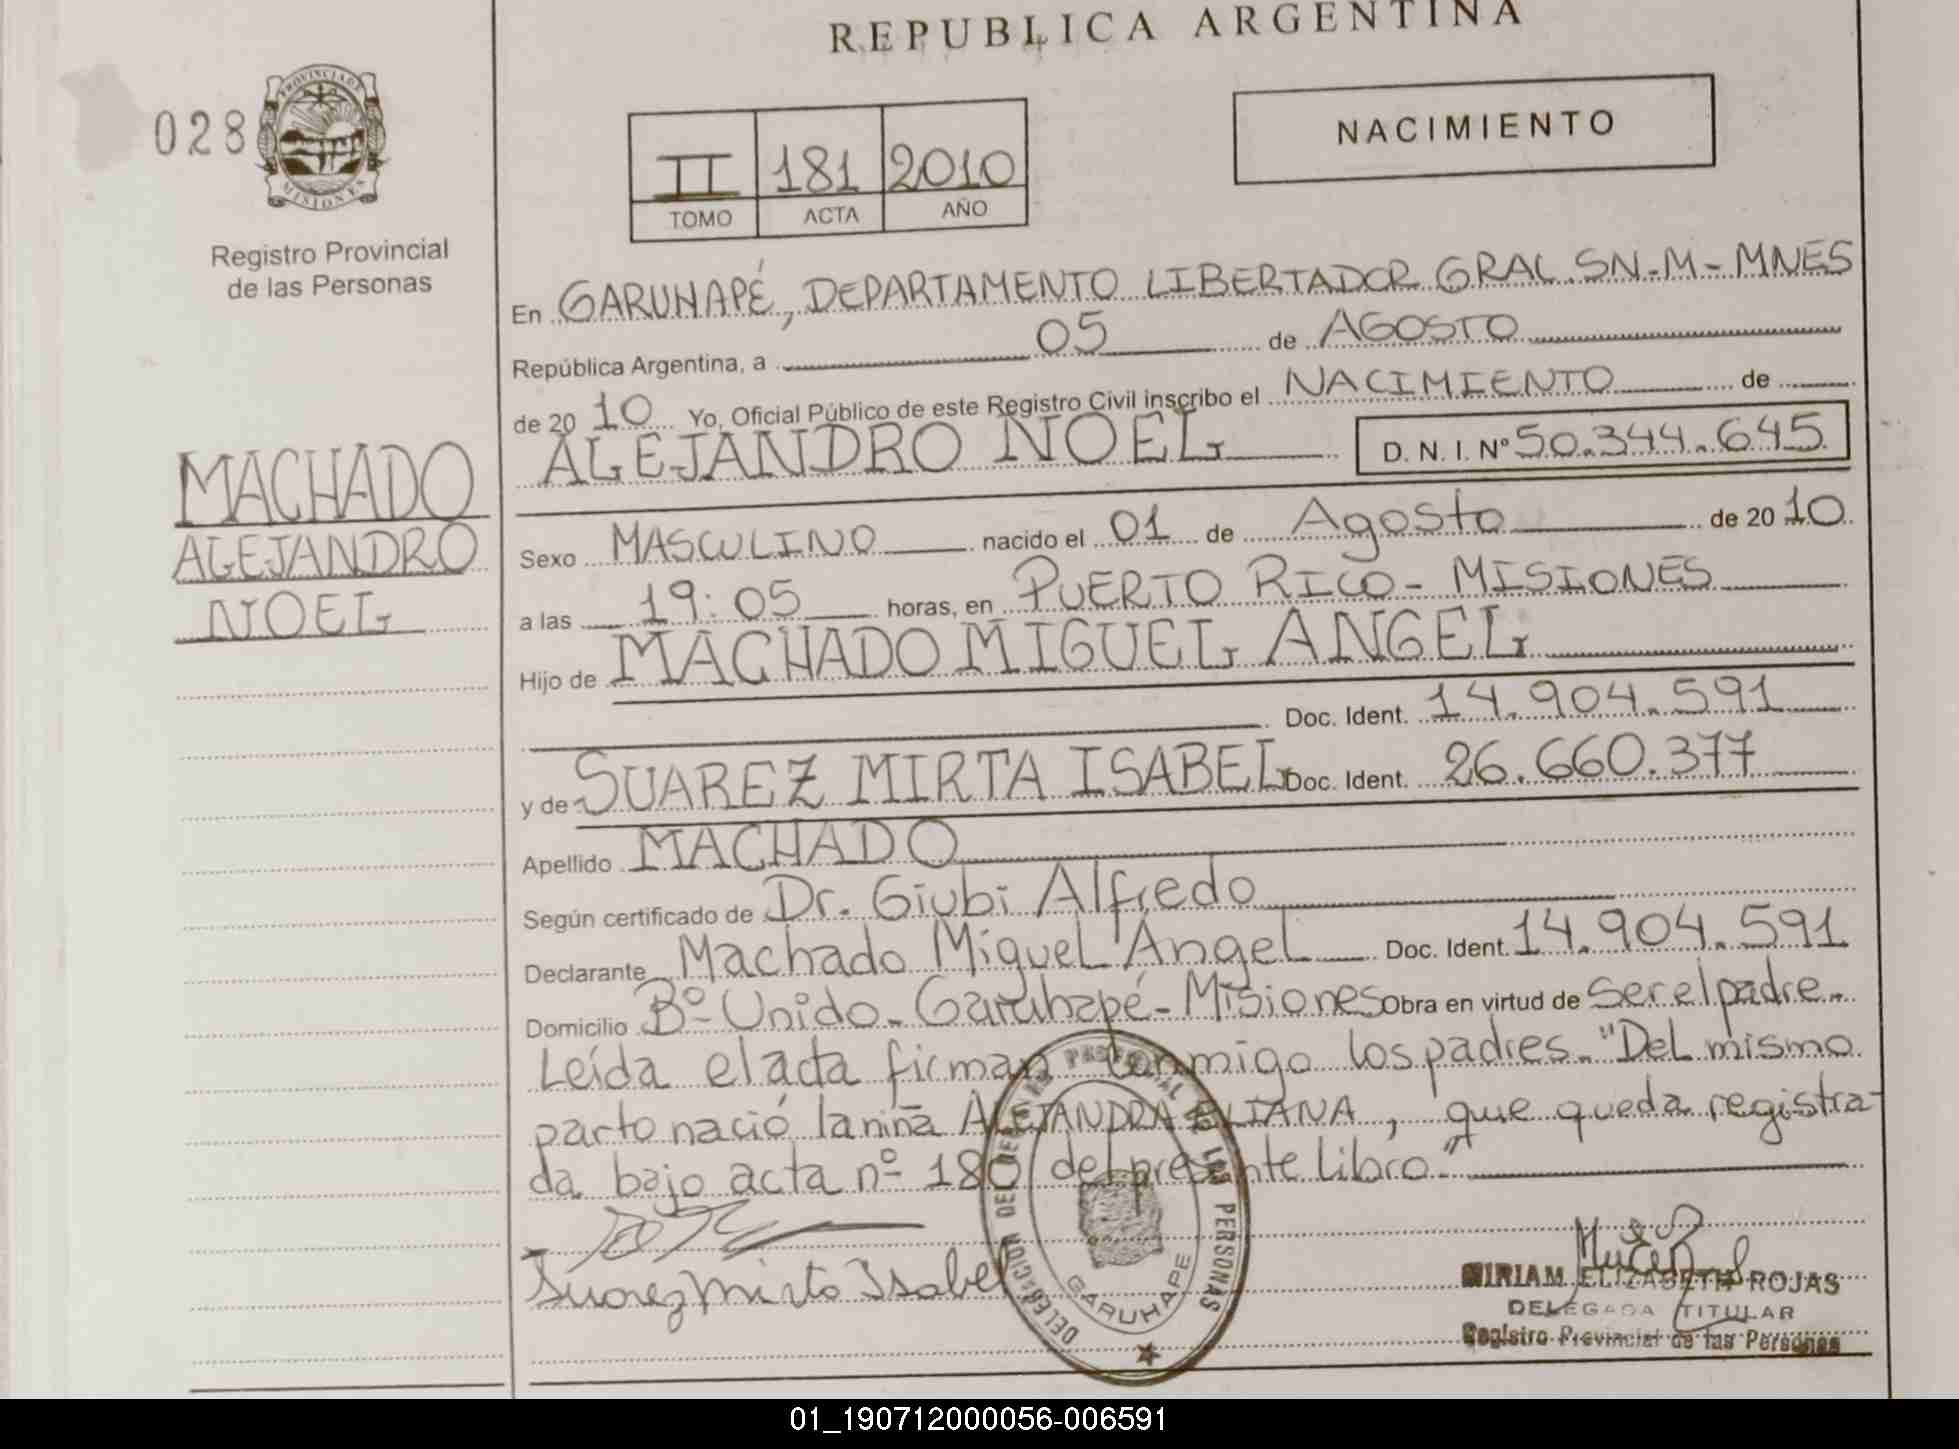 REPUBLICA ARGENTINA
028
PROVINCIA DE
MISIONES
Registro Provincial
de las Personas
II 181 2010
TOMO ACTA AÑO
NACIMIENTO
En GARUHAPÉ, DEPARTAMENTO LIBERTADOR GRAL. SN-M- MNES
República Argentina, a 05 de AGOSTO
de 2010 Yo, Oficial Público de este Registro Civil inscribo el NACIMIENTO de
ALEJANDRO NOEL D. N. I. Nº 50.344.645
MACHADO
ALEJANDRO
NOEL
Sexo MASCULINO nacido el 01 de Agosto de 2010
a las 19:05 horas, en PUERTO RICO - MISIONES
Hijo de MACHADO MIGUEL ANGEL
Doc. Ident. 14.904.591
y de SUAREZ MIRTA ISABEL Doc. Ident. 26.660.377
Apellido MACHADO
Según certificado de Dr. Giubi Alfredo
Declarante Machado Miguel Angel Doc. Ident. 14.904.591
Domicilio Bº Unido - Garuhapé - Misiones Obra en virtud de ser el padre.
Leída el acta firman conmigo los padres. "Del mismo
parto nació la niña ALEJANDRA ELIANA, que queda registra-
da bajo acta nº 180 del presente libro."
Suarez Mirta Isabel
DELEGACION DE PROVINCIAL DE LAS PERSONAS
GARUHAPE
MIRIAM ELIZABETH ROJAS
DELEGADA TITULAR
Registro Provincial de las Personas
01_190712000056-006591